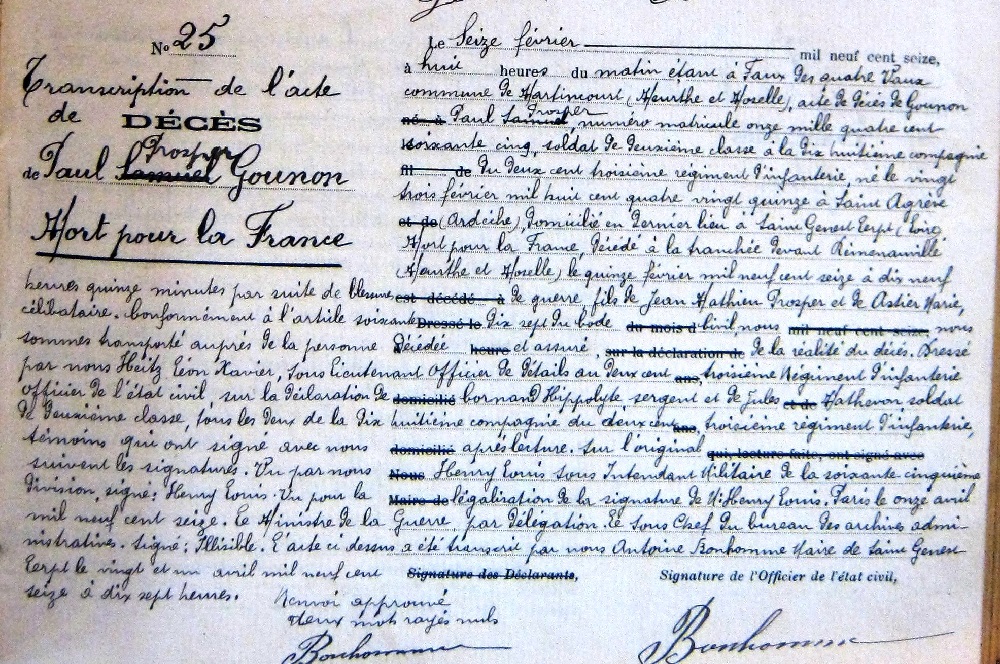 N° 25
Transcription de l'acte
de DÉCÈS
Prosper
de Paul Samuel Gounon
Mort pour la France
Le Seize février mil neuf cent seize,
à huit heures du matin étant à Faux des quatre Vaux
commune de Martincourt (Meurthe et Moselle), acte de décès de Gounon
Prosper
né à Paul Samuel, numéro matricule onze mille quatre cent
soixante cinq, soldat de deuxième classe à la dix huitième compagnie
fil de du deux cent troisième régiment d'infanterie né le vingt
trois février mil huit cent quatre vingt quinze à Saint Agrève
et de (Ardèche), domicilié en dernier lieu à Saint Genest Lerpt (Loire)
Mort pour la France, décédé à la tranchée devant Rémenauville
(Meurthe et Moselle) le quinze février mil neuf cent seize à dix neuf
heures quinze minutes par suite de blessures est décédé à de guerre fils de Jean Mathieu Prosper et de Astier Marie,
célibataire. Conformément à l'article soixante Dressé le dix sept du code du mois d civil, nous mil neuf cent seize, nous
sommes transporté auprès de la personne décédée heure et assuré, sur la déclaration de de la réalité du décès. Dressé
par nous Heitz Léon Xavier, Sous lieutenant Officier de détails au deux cent ans, troisième Régiment d'infanterie
Officier de l'état civil, sur la déclaration de domicilié bornand Hippolyte sergent et de Jules et de Mathevon soldat
de deuxième classe, tous les deux de la dix huitième compagnie du deux cent ans, troisième régiment d'infanterie,
témoins qui ont signé avec nous domicilié après lecture. Sur l'original qui, lecture faite, ont signé avec
suivent les signatures. Vu par nous Nous Henry Louis Sous Intendant Militaire de la soixante cinquième
Division, signé: Henry Louis. Vu pour la Maire de légalisation de la signature de M. Henry Louis. Paris le onze avril
mil neuf cent seize. Le Ministre de la Guerre, par délégation. Le Sous Chef du bureau des archives admi-
nistratives. Signé: Illisible. L'acte ci dessus a été transcrit par nous Antoine Bonhomme Maire de Saint Genest
Lerpt le vingt et un avril mil neuf cent Signature des Déclarants, Signature de l'Officier de l'état civil,
seize à dix sept heures.
Renvoi approuvé
deux mots rayés nuls
Bonhomme
Bonhomme